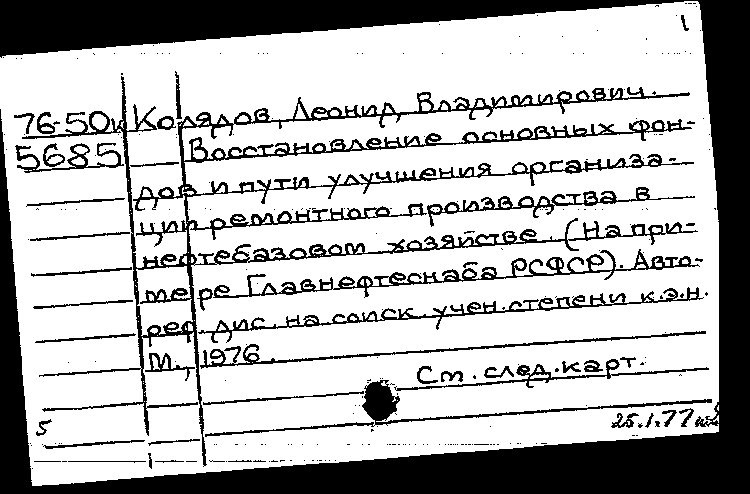 1
76-50к Колядов, Леонид Владимирович.
5685 Восстановление основных фон-
дов и пути улучшения организа-
ции ремонтного производства в
нефтебазовом хозяйстве. (На при-
мере Главнефтеснаба РСФСР). Авто-
реф. дис. на соиск. учен. степени к.э.н.
М., 1976.
См. след. карт.
5
25.1.77